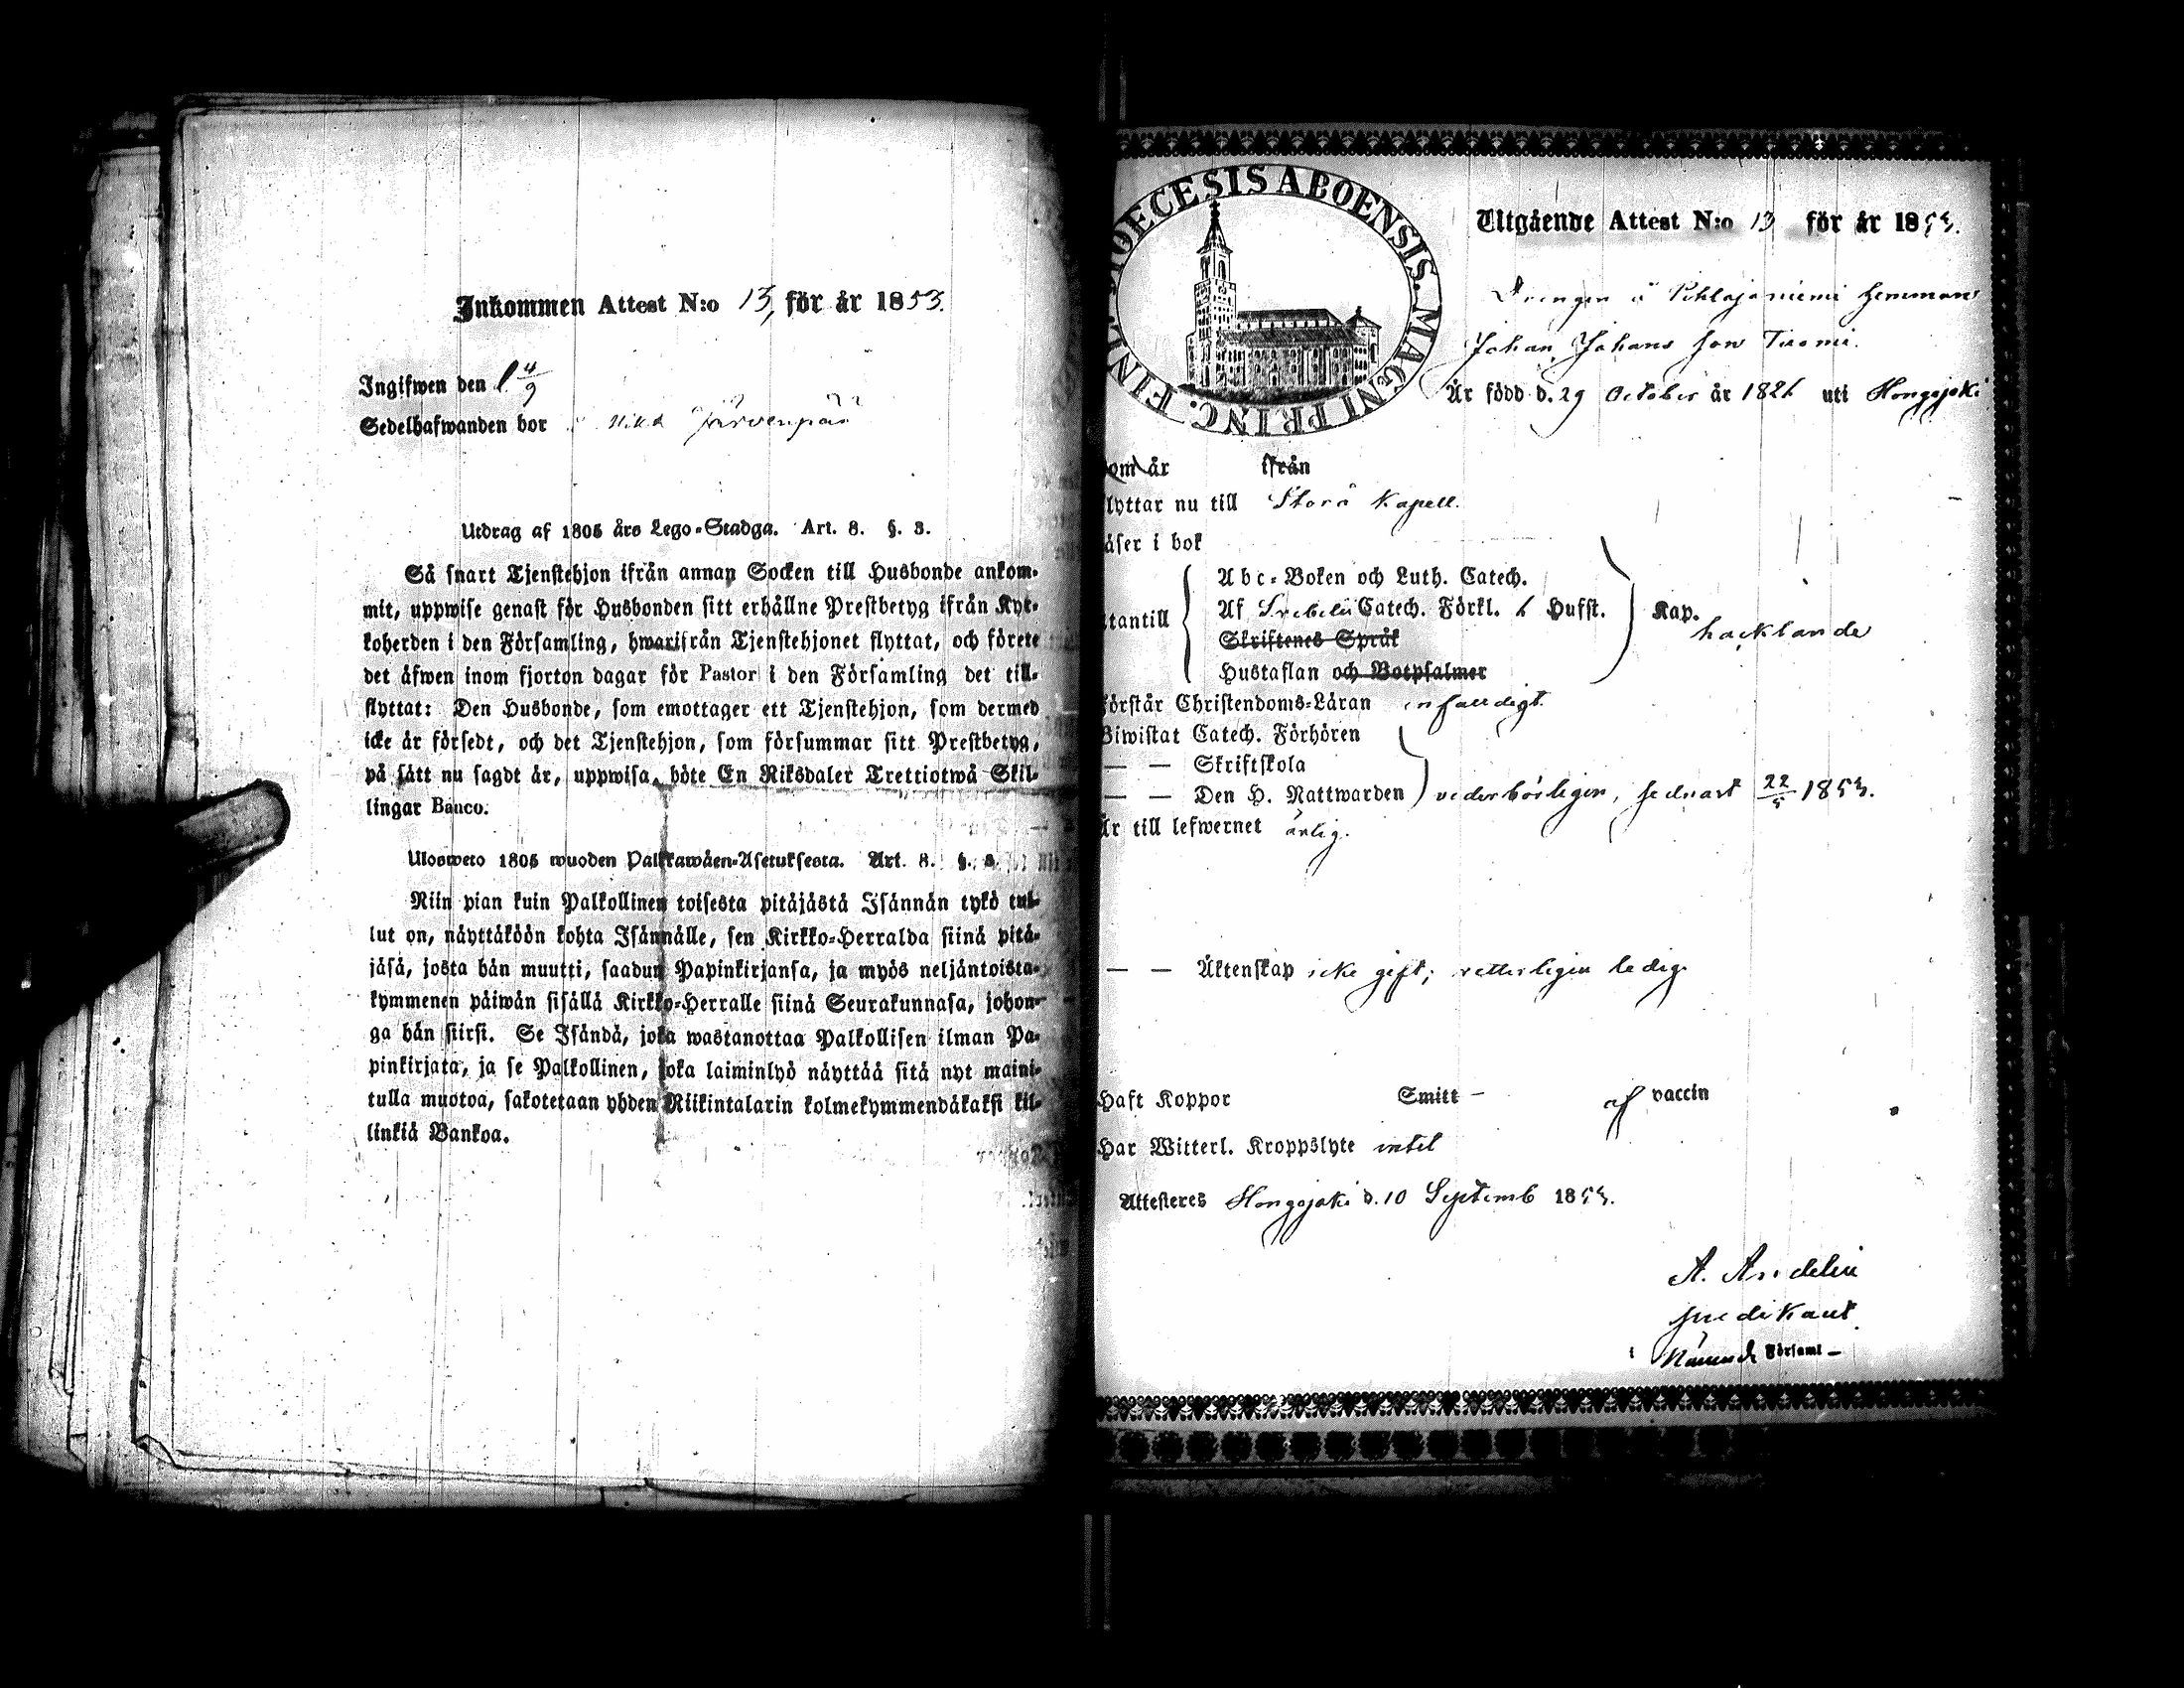 Inkommen Attest N:o 13, för år 1853.
Ingifwen den
Sedelhafwanden bor Järvenpää
Utdrag af 1805 års Lego-Stadga. Art. 8. §. 3.
Så snart Tjenstehjon ifrån annan Socken till Husbonde ankom-
mit, uppwise genast för Husbonden sitt erhållne Prestbetyg ifrån Kyr-
koherden i den Församling, hwarifrån Tjenstehjonet flyttat, och förete
det äfwen inom fjorton dagar för Pastor i den Församling det till-
flyttat: Den Husbonde, som emottager ett Tjenstehjon, som dermed
icke är försedt, och det Tjenstehjon, som försummar sitt Prestbetyg,
på sätt nu sagdt är, uppwisa, böte En Riksdaler Trettiotwå Skil-
lingar Banco.
Ulosweto 1805 wuoden Palkkawäen-Asetuksesta. Art. 8. §. 3.
Niin pian kuin Palkollinen toisesta pitäjästä Isännän tykö tul-
lut on, näyttäköön kohta Isännälle, sen Kirkko-Herralda siinä pitä-
jäsä, josta hän muutti, saadun Papinkirjansa, ja myös neljäntoista-
kymmenen päiwän sisällä Kirkko-Herralle siinä Seurakunnasa, johon-
ga hän siirsi. Se Isändä, joka wastanottaa Palkollisen ilman Pa-
pinkirjata, ja se Palkollinen, joka laiminlyö näyttää sitä nyt maini-
tulla muotoa, sakotetaan yhden Riikintalarin kolmekymmendäkaksi kil-
linkiä Bankoa.
DIOECESIS ABOENSIS. MAGNI PRINC. FINL.
Utgående Attest N:o 13 för år 1853.
Drengen å Pihlajaniemi hemman
Johan Johans son Tuomi.
Är född d. 29 October år 182 uti Hongojoki
om år ifrån
lyttar nu till Storå Kapell.
äser i bok
tantill
Abc-Boken och Luth. Catech.
Af Svebelii Catech. Förkl. & Husst.
Skriftenes Språk
Hustaflan och Botpsalmer
Kap. hacklande
örstår Christendoms-Läran enfaldigt.
Biwistat Catech. Förhören
— — Skriftskola
— — Den H. Nattwarden vederbörligen, sednast 22/5 1853.
Är till lefwernet ärlig.
— — Äktenskap icke gift; vetterligen ledig.
Haft Koppor Smitt - af vaccin
Har Witterl. Kroppslyte intet
Attesteres Hongojoki d. 10 Septemb 1853.
A. Andelin
predikant
i Nämnde Församl —